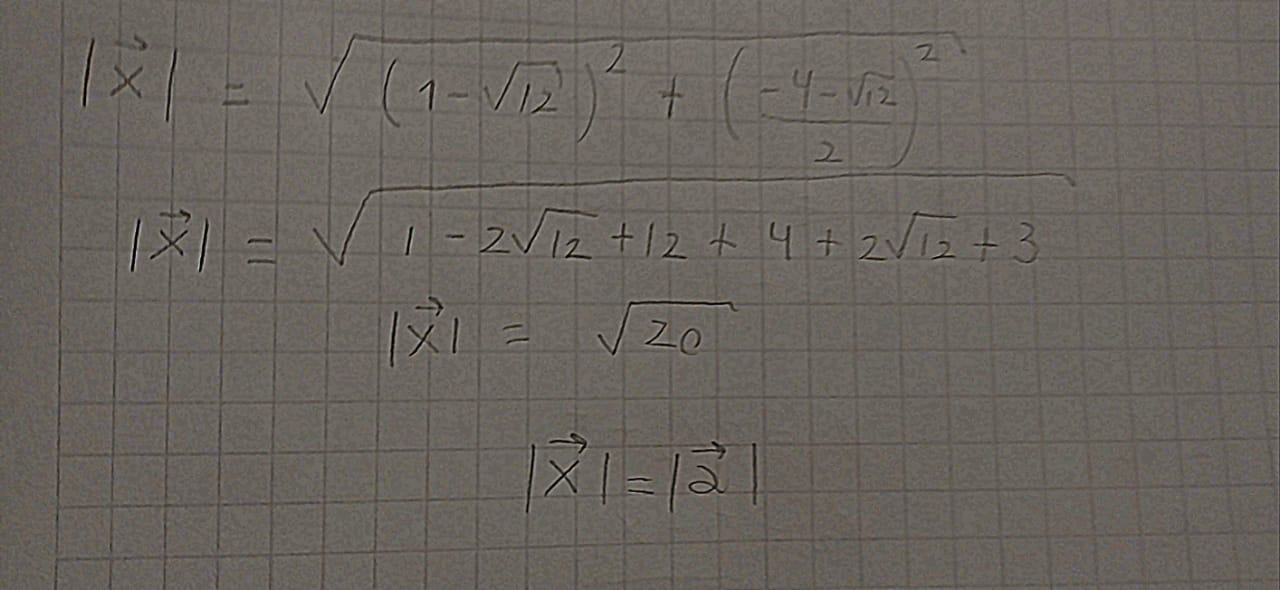 |x⃗| = √((1-√12)² + ((-4-√12)/2)²)
|x⃗| = √(1 - 2√12 + 12 + 4 + 2√12 + 3)
|x⃗| = √20
|x⃗| = |a⃗|